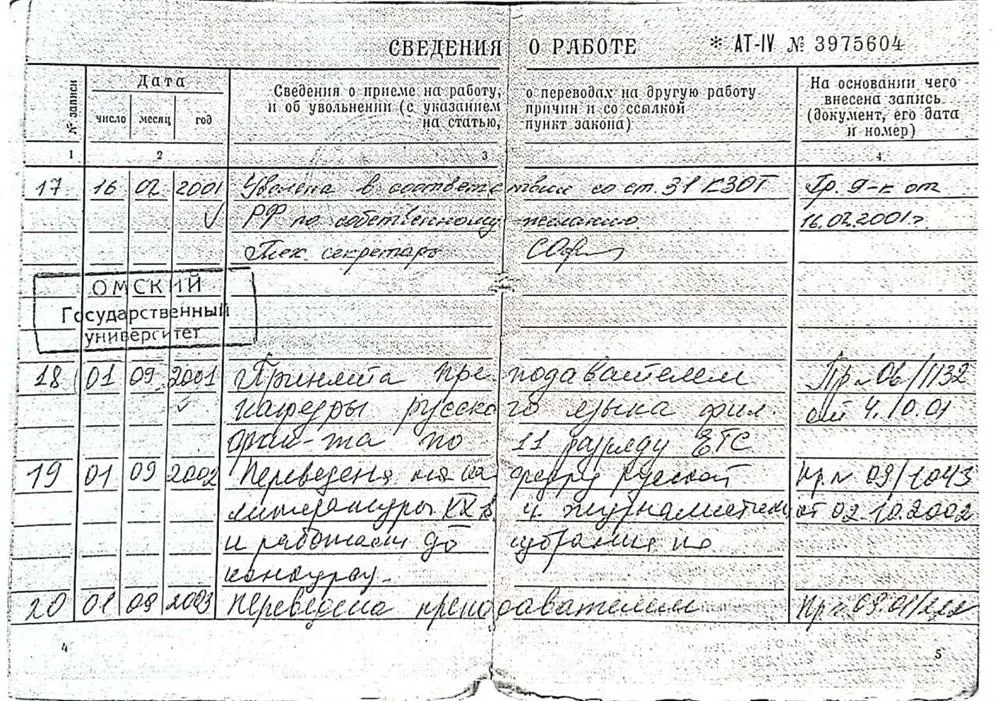 СВЕДЕНИЯ О РАБОТЕ * АТ-IV № 3975604
№ записи
Дата
число месяц год
Сведения о приеме на работу, о переводах на другую работу
и об увольнении (с указанием причин и со ссылкой
на статью, пункт закона)
На основании чего
внесена запись
(документ, его дата
и номер)
1 2 3 4
17 16 02 2001 Уволена в соответствии со ст. 31 КЗОТ Пр. 9-к от
РФ по собственному желанию. 16.02.2001г.
Тех. секретарь
ОМСКИЙ
Государственный
университет
18 01 09 2001 Принята преподавателем Пр № 06/1132
кафедры русского языка фил. от 4.10.01
фак-та по 11 разряду ЕТС
19 01 09 2002 Переведена на кафедру русской Пр. № 09/1043
литературы XX в. и журналистики от 02.10.2002
и работает до избрания по
конкурсу.
20 01 09 2003 Переведена преподавателем
4 5